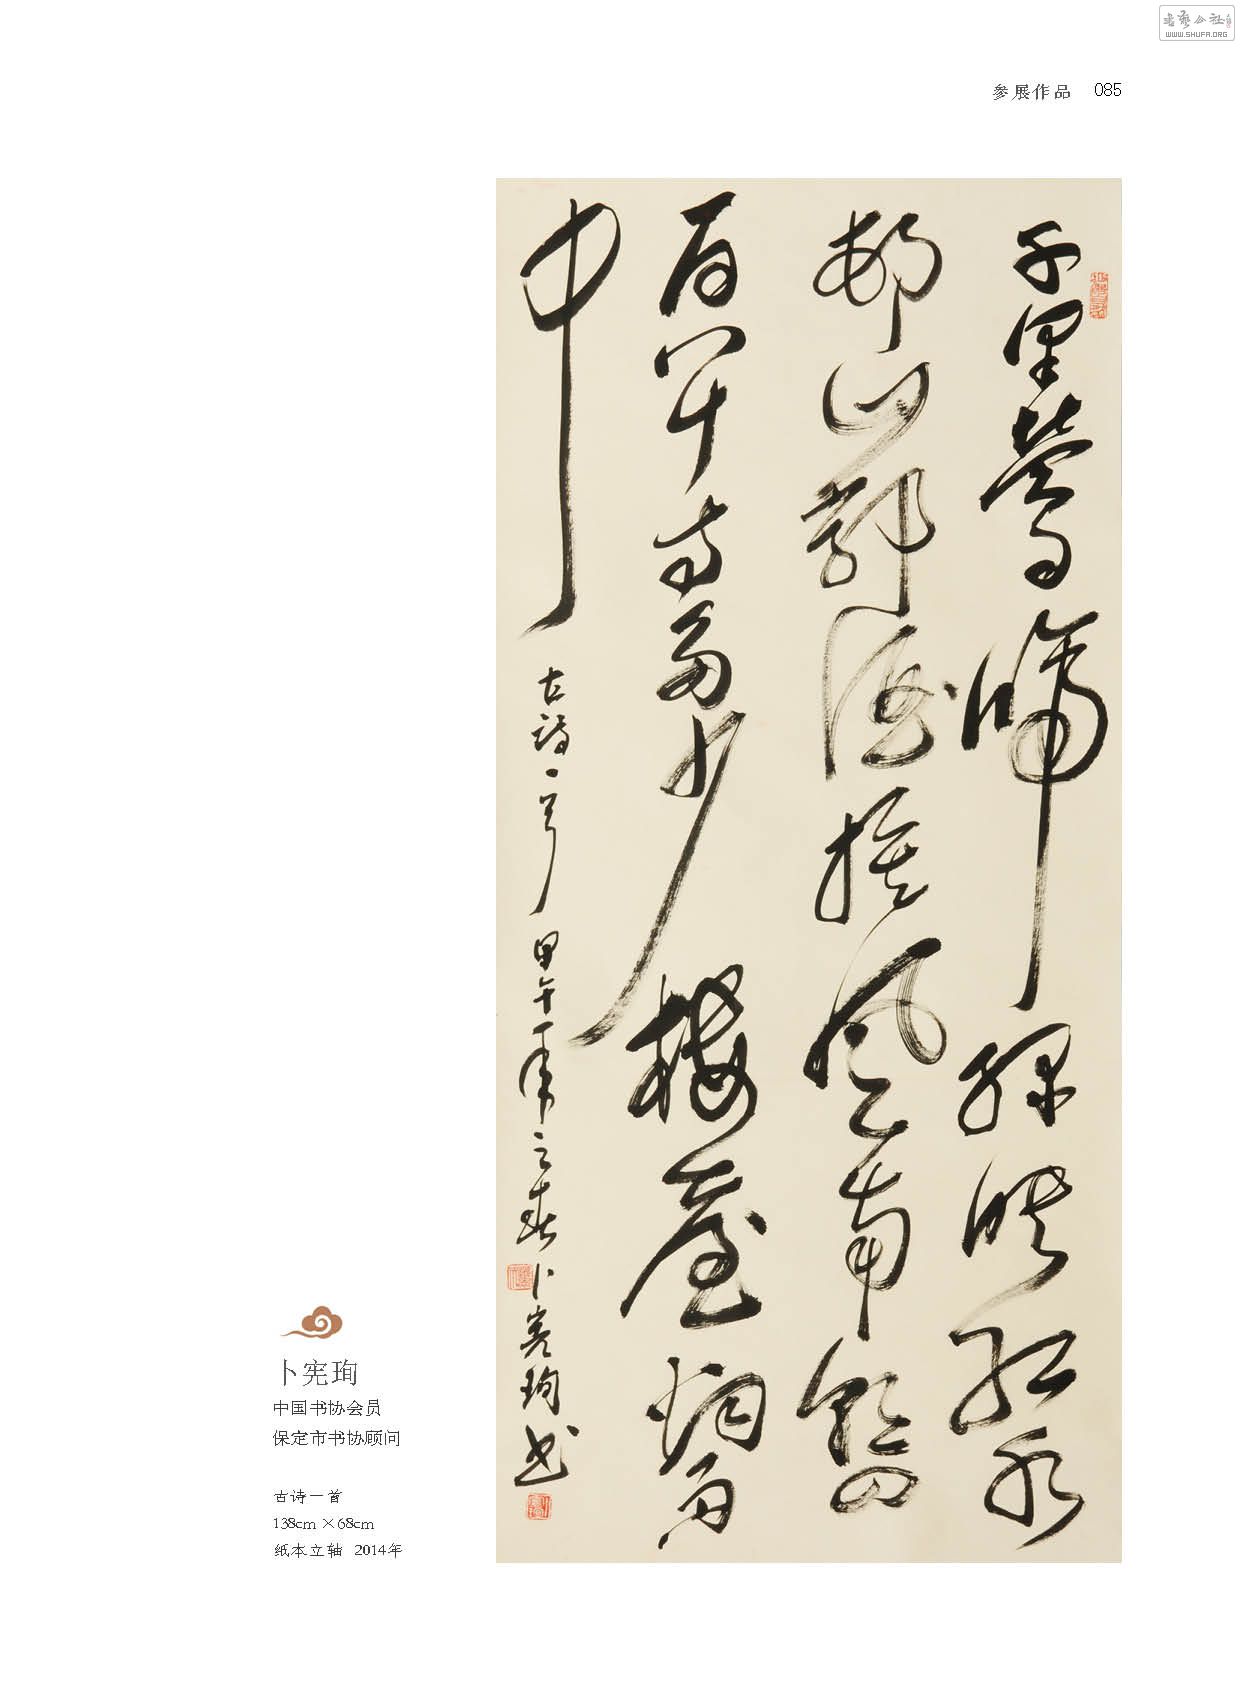 书艺公社
WWW.SHUFA.ORG
参展作品 085
千里鶯啼綠映紅水
邨山郭酒旗風南朝四
百八十寺多少樓臺烟雨
中 古詩一首 甲午年之春 卜憲珣书
卜宪珣
中国书协会员
保定市书协顾问
古诗一首
138cm×68cm
纸本立轴 2014年